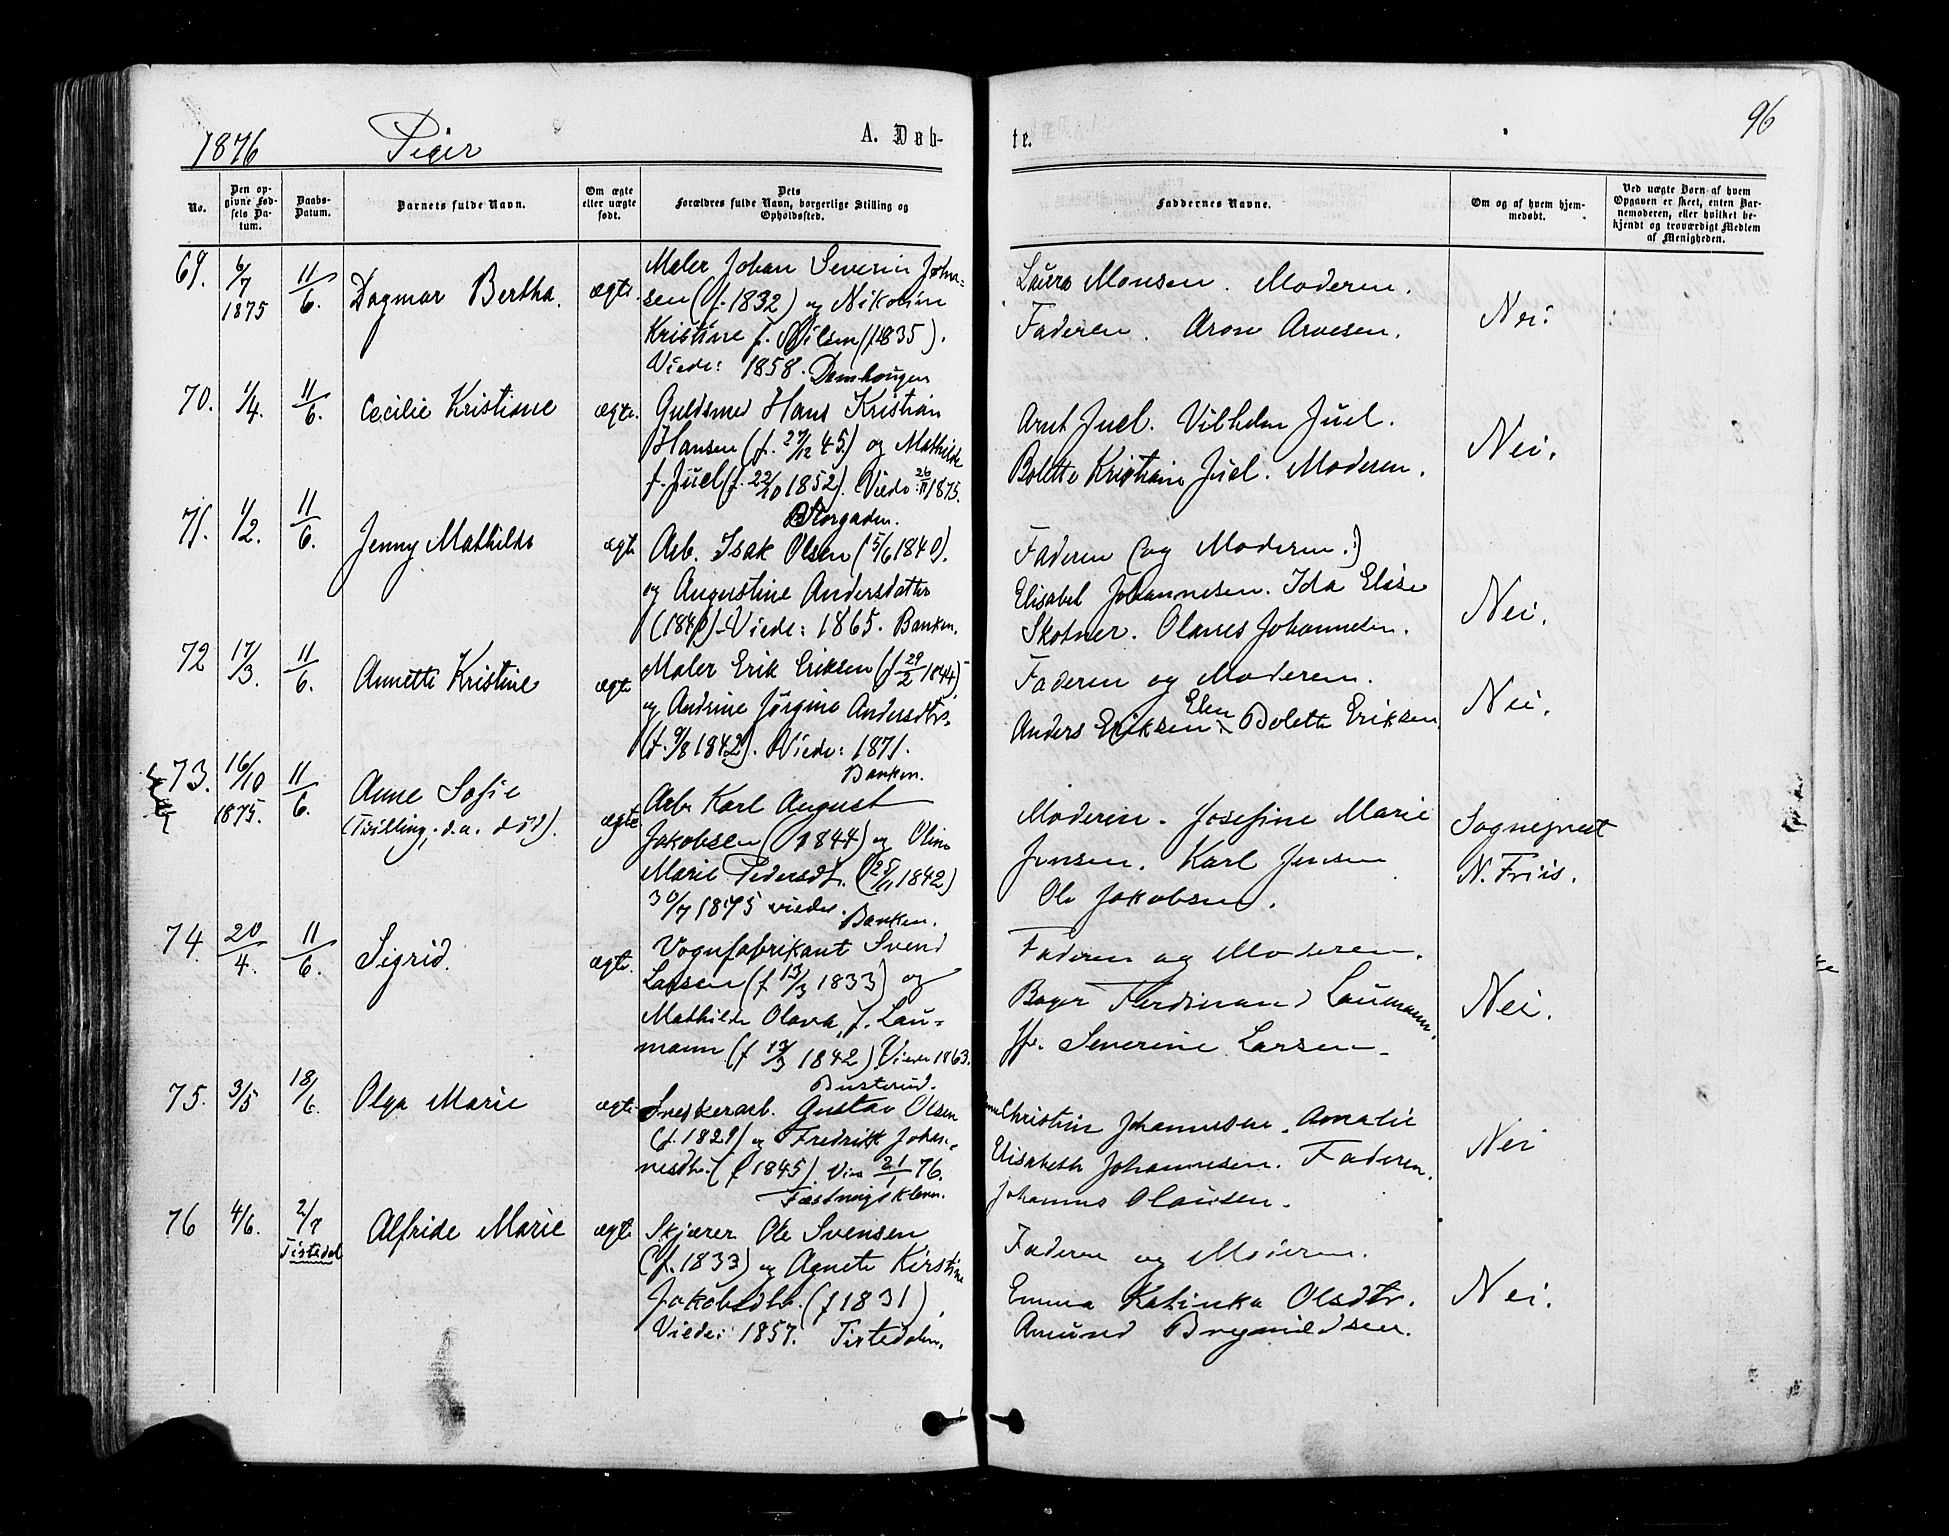 1876 Piger A. Døb-
te. 96
No.
Den op-
givne Fød-
sels Da-
tum.
Daabs-
Datum.
Barnets fulde Navn.
Om ægte
eller uægte
født.
Dets
Forældres fulde Navn, borgerlige Stilling og
Opholdssted.
Faddernes Navne.
Om og af hvem hjem-
medøbt.
Ved uægte Børn af hvem
Opgaven er skeet, enten Bar-
nemoderen, eller hvilket be-
kjendt og troværdigt Medlem
af Menigheden.
69. 6/7 1875 11/6. Dagmar Bertha. ægte.
Maler Johan Severin Johan-
sen (f. 1832) og Nikoline
Kristine f. Nilsen (f. 1835).
Viede: 1858. Damhaugen
Laura Monsen. Moderen.
Faderen. Aron Arvesen.
Nei.
70. 1/4. 11/6. Cecilie Kristiane ægte.
Guldsmed Hans Kristian
Hansen (f. 27/12 45.) og Mathilde
f. Juel (f. 22/10 1852). Viede: 26/11 1875.
Storgaden.
Arnt Juel. Vilhelm Juel.
Bolette Kristiane Juel. Moderen.
Nei.
71. 1/2. 11/6. Jenny Mathilde ægte
Arb. Isak Olsen (5/6 1840).
og Augustine Andersdatter
(1842) - Viede: 1865. Banken.
Faderen (og Moderen.)
Elisabet Johannesen. Ida Elise
Skotner. Olaves Johannesen.
Nei.
72 17/3. 11/6. Annette Kristine ægte
Maler Erik Eriksen (f 29/2 1844).
og Andrine Jørgine Andersdtr.
(f. 9/8 1842). Viede: 1871.
Banken.
Faderen og Moderen.
Anders Eriksen. Elen Bolette Eriksen
Nei.
73. 16/10 1875. 11/6. Anne Sofie
(Tvilling; d.a. død). ægte
Arb. Karl August
Jakobsen (1844) og Oline
Marie Pedersdt. (25/11 1842)
30/7 1875 viede. Banken.
Moderen. Josefine Marie
Jensen. Karl Jensen
Ole Jakobsen.
Sognepræst
N. Friis.
74. 20/4. 11/6. Sigrid. ægte.
Vognfabrikant Svend
Larsen (f 13/3 1833) og
Mathilde Olava, f. Lau-
mann (f 13/3 1842) Viede 1863.
Busterud.
Faderen og Moderen.
Bager Ferdinand Laumann.
Jfr. Severine Larsen.
Nei.
75. 3/5 18/6. Olga Marie ægte
Snedkerarb. Gustav Olsen
(f. 1829) og Fredrikke Johan-
nesdtr. (f 1845). Viede 21/1 76.
Fæstningskleven.
Christine Johannesen. Amalie
Elisabeth Johannesen. Faderen.
Johannes Olausen.
Nei
76 4/6. 2/7 Tistedal Alfride Marie ægte
Skjærer Ole Svensen
(f. 1833) og Agnete Kirstine
Jakobsdtr. (f 1831).
Viede: 1857. Tistedalen.
Faderen og Moderen.
Emma Katinka Olsdtr.
Amund Brynildsen.
Nei.